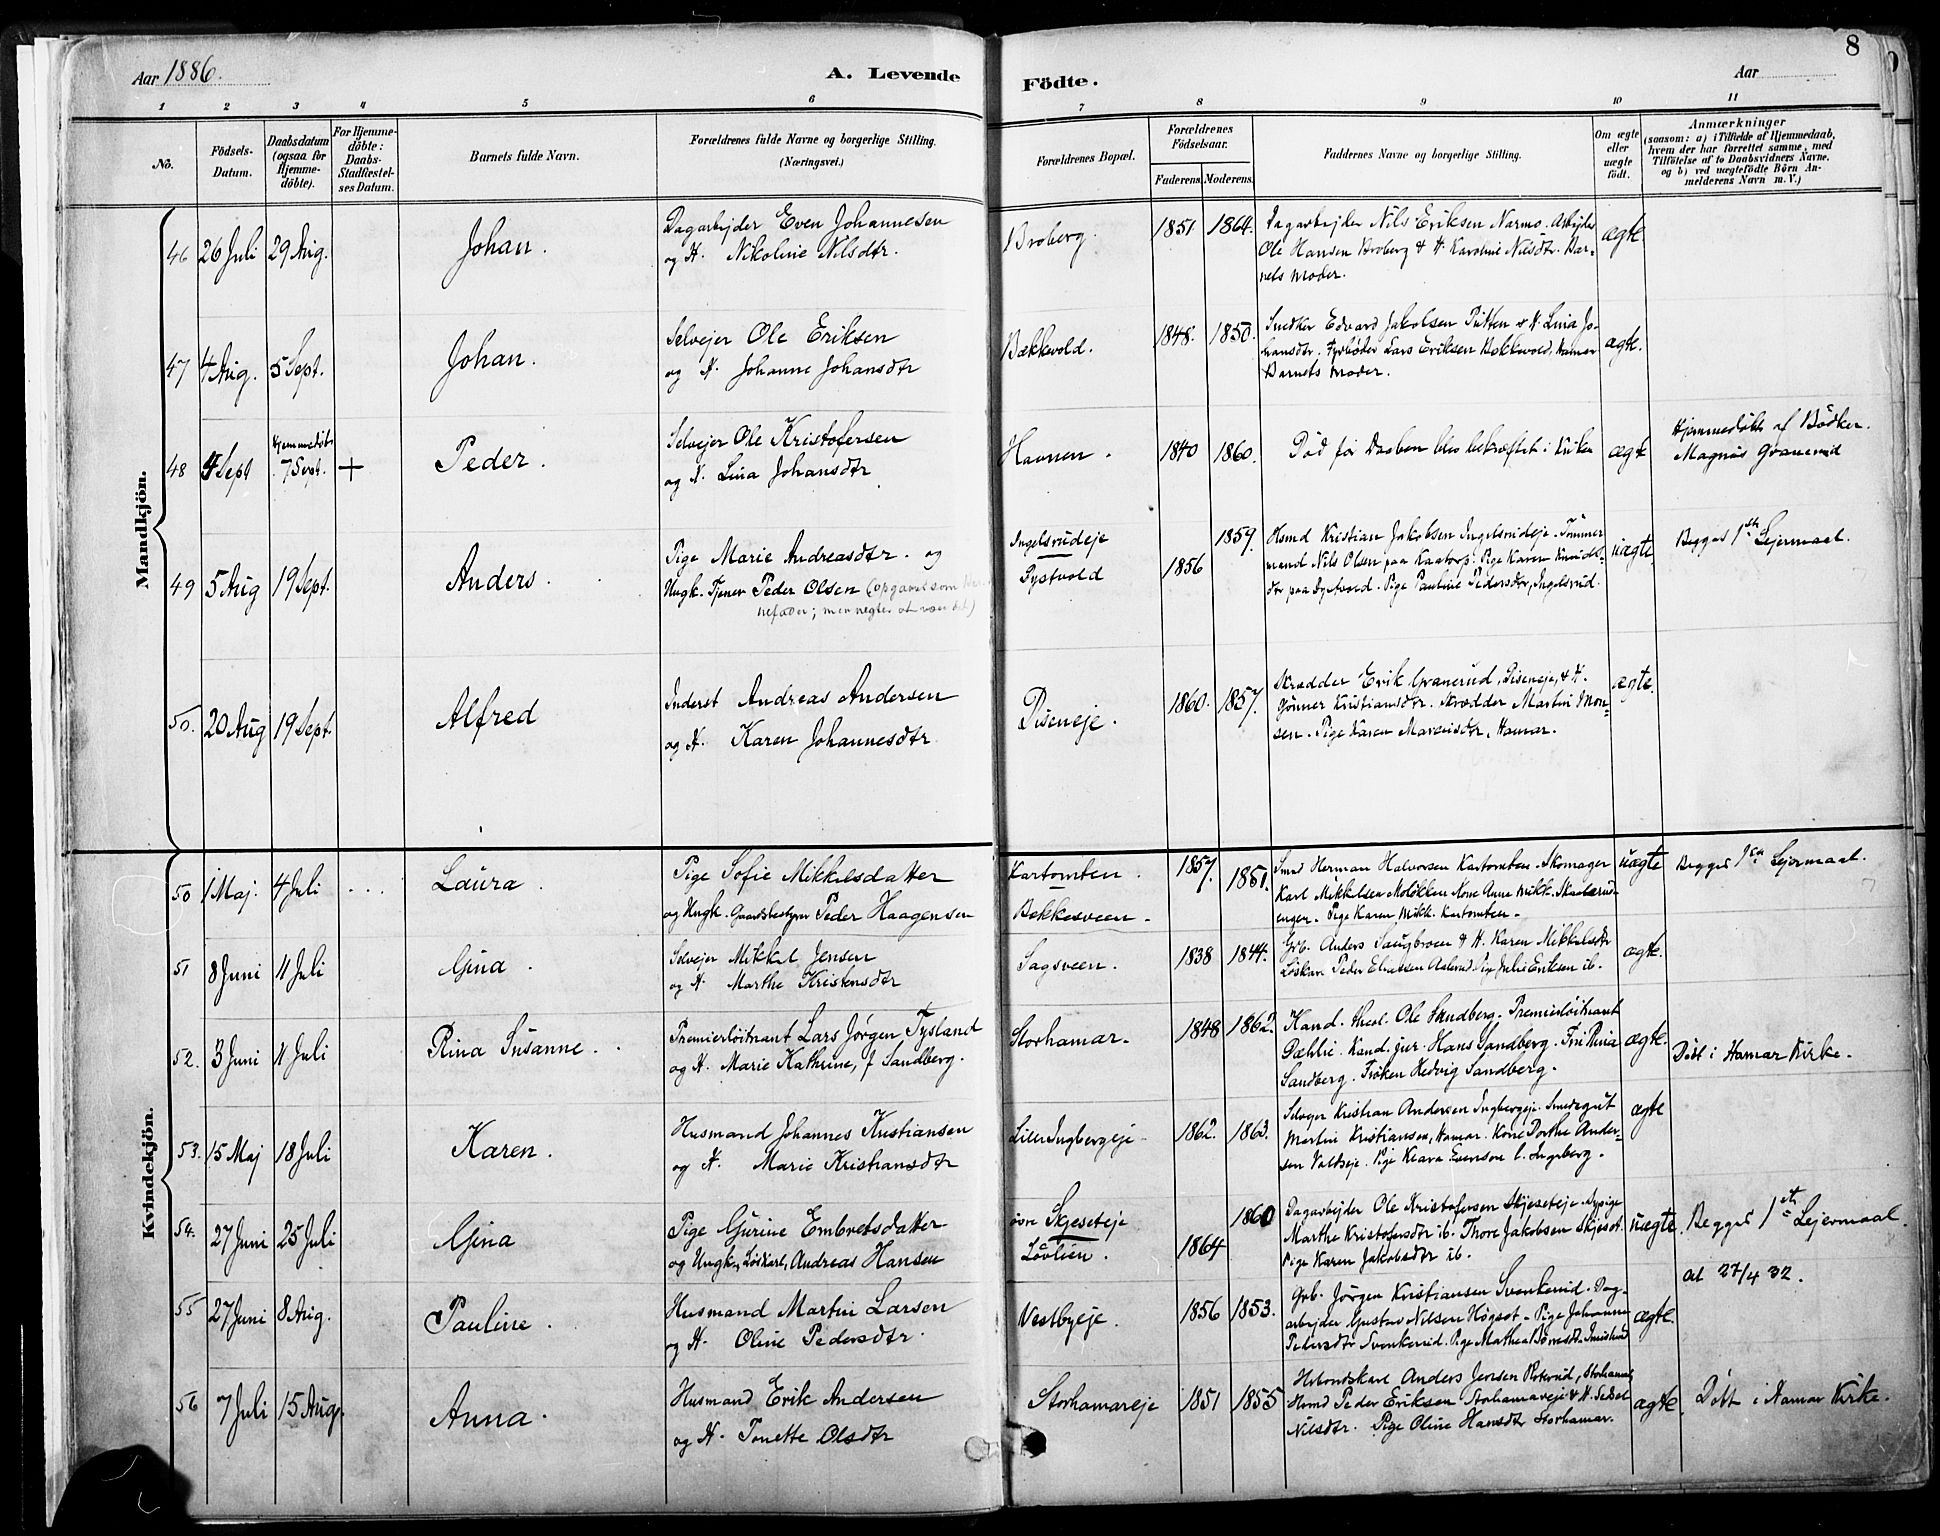 8
Aar 1886.
A. Levende
Födte.
Aar
1 2 3 4 5 6 7 8 9 10 11
No.
Födsels-Datum.
Daabsdatum (ogsaa for Hjemme-döbte).
For Hjemme-döbte: Daabs-Stadfæstel-ses Datum.
Barnets fulde Navn.
Forældrenes fulde Navne og borgerlige Stilling.
(Næringsvei.)
Forældrenes Bopæl.
Forældrenes Födselsaar.
Faderens. Moderens.
Faddernes Navne og borgerlige Stilling.
Om ægte eller uægte födt.
Anmærkninger
(saasom: a) i Tilfælde af Hjemmedaab,
hvem der har forrettet samme, med
Tilföielse af to Daabsvidners Navne.
og b) ved uægtefödte Börn An-
melderens Navn m. V.)
Mandkjön.
46 26 Juli 29 Aug. Johan.
Dagarbejder Even Johannesen
og H. Nikoline Nilsdtr.
Broberg. 1851 1864.
Dagarbejder Nils Eriksen Narmo. Arbejder
Ole Hansen Broberg & H. Karoline Nilsdtr. Bar-
nets Moder.
ægte
47 4 Aug. 5 Sept. Johan.
Selvejer Ole Eriksen
og H. Johanne Johansdtr
Bækkevold. 1848. 1850.
Snedker Edvard Jakobsen Putten & H. Lina Jo-
hansdtr. Fyrbøder Lars Eriksen Bækkevold, Hamar
Barnets Moder.
ægte.
48 4 Sept Hjemmedøbt 7 Sept. + Peder.
Selvejer Ole Kristofersen
og H. Lina Johansdtr
Havnen. 1840 1860.
Død før Daaben blev bekræftet i Kirken
ægte
Hjemmedøbt af Bødker.
Magnus Granerud
49 5 Aug 19 Sept. Anders.
Pige Marie Andreasdtr. og
Ungk. Tjener Peder Olsen (opgivet som Bar-
nefader; men negter at være det)
Ingelsrudeje
Dystvold
1856 1859.
Hsmd Kristian Jakobsen Ingelsrudeje. Tømmer
mand Nils Olsen paa Kaatorp. Pige Karen Knuds-
dtr paa Dystvold. Pige Pauline Pedersdtr, Ingelsrud.
uægte
Begges 1ste Lejermaal.
50. 20 Aug 19 Sept. Alfred
Inderst Andreas Andersen
og H. Karen Johannesdtr
Diseneje. 1860. 1857.
Skrædder Erik Granerud, Diseneje, & H.
Gønner Kristiansdtr. Skrædder Martin Mon-
sen. Pige Karen Marenisdtr, Hamar.
ægte.
Kvindekjön.
50 1 Maj. 4 Juli ... Laura.
Pige Sofie Mikkelsdatter
og Ungk. Gaardsbestyrer Peder Haagensen
Kartomten.
Bekkesveen.
1857. 1851.
Smed Herman Halvorsen Kartomten. Skomager
Karl Mikkelsen Moløkken Kone Anne Mikk. Skatterud-
enger. Pige Karen Mikk. Kartomten.
uægte
Begges 1ste Lejermaal.
51 8 Juni 11 Juli Gina.
Selvejer Mikkel Jensen
og H. Marthe Kristensdtr
Sagsveen. 1838 1844.
Grb. Anders Saugbroen & H. Karen Mikkelsdtr
Løskarl Peder Eliassen Aalerud. Pige Julie Eriksen ib.
ægte.
52. 3 Juni 11 Juli Rina Susanne.
Premierløitnant Lars Jørgen Tysland
og H. Marie Kathrine, f Sandberg.
Storhamar. 1848 1862.
Kand. theol. Ole Sandberg. Premierløitnant
Dæhlie. Kand. jur. Hans Sandberg. Frk Rina
Sandberg. Frøken Hedvig Sandberg.
ægte.
Døbt i Hamar Kirke.
53. 15 Maj 18 Juli Karen.
Husmand Johannes Kristiansen
og H. Marie Kristiansdtr
Lille Ingbergeje 1862. 1863.
Selvejer Kristian Andersen Ingbergeje. Smedegut
Martin Kristiansen, Hamar. Kone Dorthe Ander-
sen Voldseje. Pige Klara Evensen l. Ingeberg.
ægte
54. 27 Juni 25 Juli Gina
Pige Gurine Embretsdatter
og Ungk., Løskarl, Andreas Hansen
øvre Skjeseteje
Løvlien.
1864 1860
Dagarbejder Ole Kristofersen Skjeseteje. Sypige
Marthe Kristofersdtr ib. Thore Jakobsen Skjeset.
Pige Karen Jakobsdtr ib.
uægte.
Begges 1ste Lejermaal.
at 27/4 32.
55 27 Juni 8 Aug. Pauline.
Husmand Martin Larsen
og H. Oline Pedersdtr.
Vestbyeje. 1856 1853.
Grb. Jørgen Kristiansen Svenkerud. Dag-
arbejder Gustav Nilsen Høgset. Pige Johanne
Pedersdtr Svenkerud. Pige Mathea
ægte.
56 7 Juli 15 Aug. Anna.
Husmand Erik Andersen
og H. Tonette Olsdtr
Storhamareje 1851 1855
Anders Jensen Roterud, Storhamar,
Hsmd Peder Eriksen Storhamareje & H.
Nilsdtr. Pige Oline Hansdtr Storhamar.
ægte.
Døbt i Hamar Kirke.